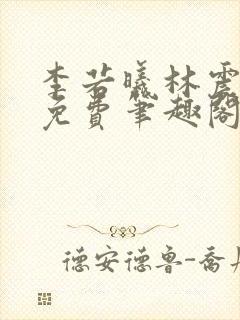 李若曦林震
免费笔趣阁
德安德鲁-乔丹